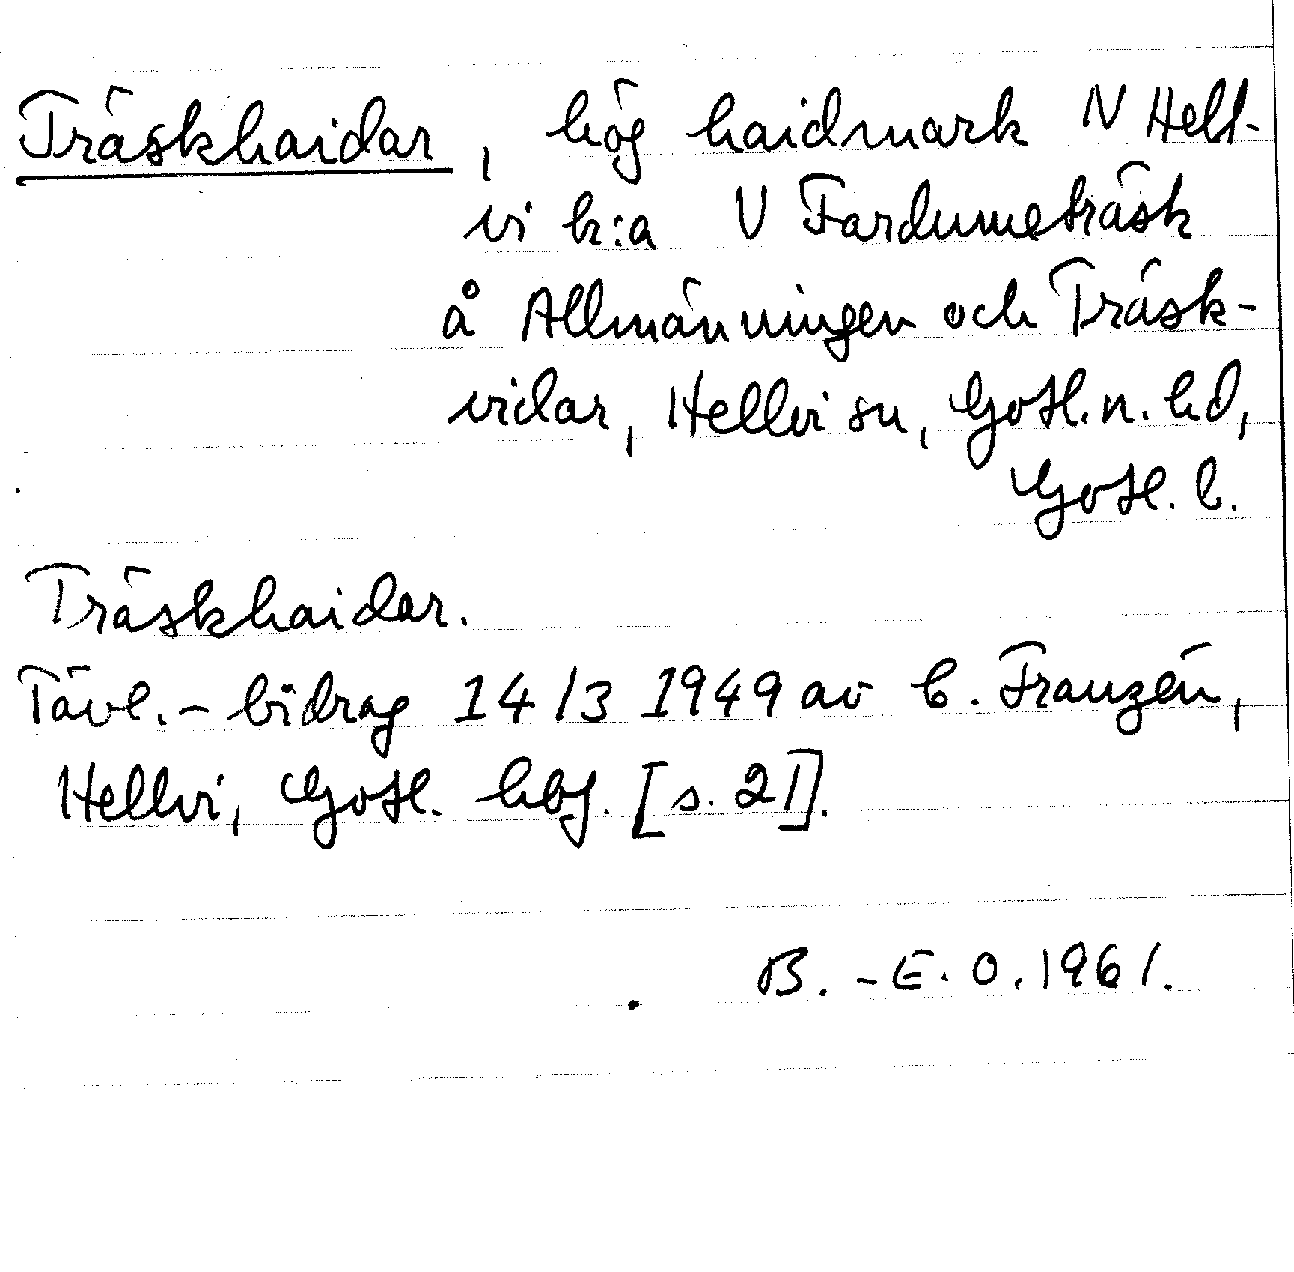 Träskhaidar, hög haidmark N Hell-
vi k:a V Fardumeträsk
å Allmänningen och Träsk-
vidar, Hellvi sn, Gotl. n. hd,
Gotl. l.
Träskhaidar.
Tävl.-bidrag 14/3 1949 av C. Franzén,
Hellvi, Gotl. hbf. [s. 21].
B.-E. O. 1961.